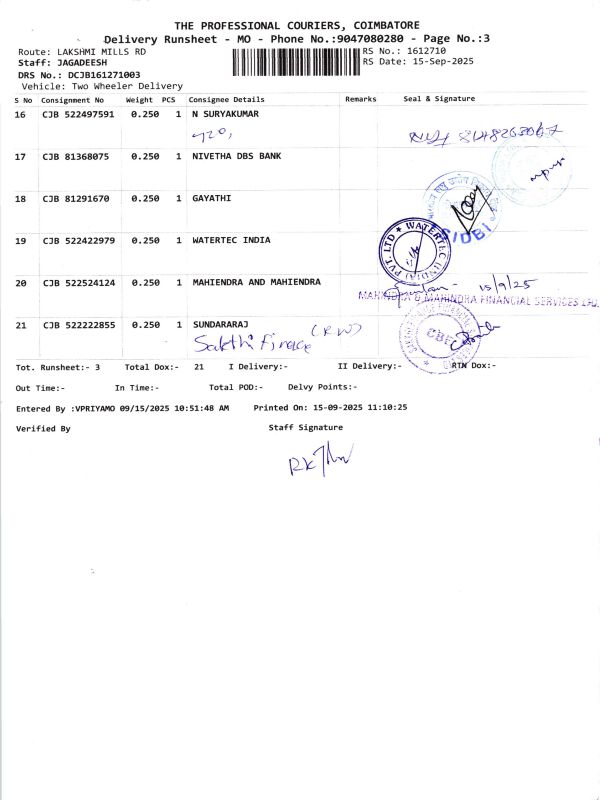 THE PROFESSIONAL COURIERS, COIMBATORE
Delivery Runsheet - MO - Phone No.:9047080280 - Page No.:3
Route: LAKSHMI MILLS RD RS No.: 1612710
Staff: JAGADEESH RS Date: 15-Sep-2025
DRS No.: DCJB161271003
Vehicle: Two Wheeler Delivery
S No Consignment No Weight PCS Consignee Details Remarks Seal & Signature
16 CJB 522497591 0.250 1 N SURYAKUMAR
17 CJB 81368075 0.250 1 NIVETHA DBS BANK
18 CJB 81291670 0.250 1 GAYATHI
SIDBI
19 CJB 522422979 0.250 1 WATERTEC INDIA
WATERTEC (INDIA) PVT. LTD
20 CJB 522524124 0.250 1 MAHIENDRA AND MAHIENDRA
15/9/25
MAHINDRA & MAHINDRA FINANCIAL SERVICES LTD.
21 CJB 522222855 0.250 1 SUNDARARAJ
(RW)
Sakthi Finance
CBE
Tot. Runsheet:- 3 Total Dox:- 21 I Delivery:- II Delivery:- RTN Dox:-
Out Time:- In Time:- Total POD:- Delvy Points:-
Entered By :VPRIYAMO 09/15/2025 10:51:48 AM Printed On: 15-09-2025 11:10:25
Verified By Staff Signature